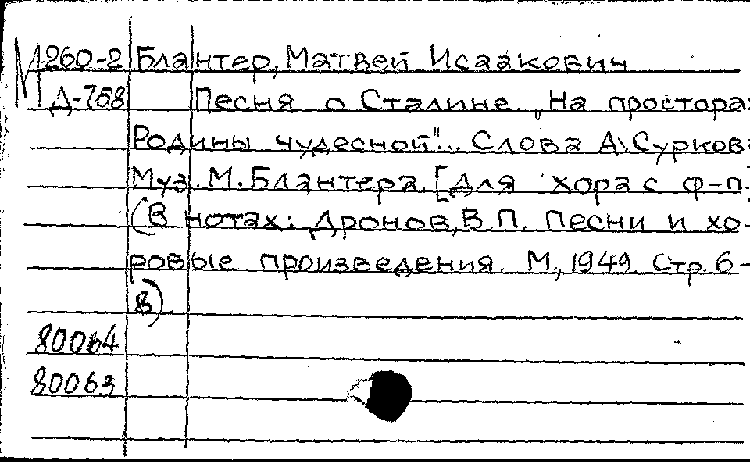 М260-2 Блантер, Матвей Исаакович
Д-758 Песня о Сталине „На простора
Родины чудесной". Слова А. Суркова
Муз. М. Блантера. [Для хора с ф-п.]
(В нотах: Дронов, В.П. Песни и хо-
ровые произведения. М., 1949. Стр. 6-
8)
80064
80063